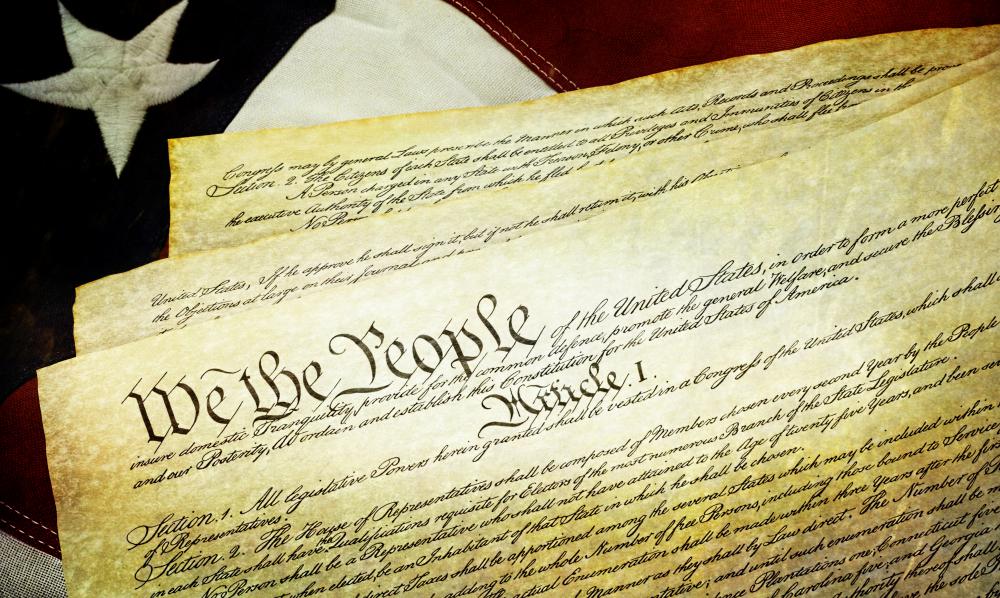 Congress may by general Laws prescribe the Manner in which such Acts, Records and Proceedings shall be
Section. 2. The Citizens of each State shall be entitled to all Privileges and Immunities of Citizens in the
A Person charged in any State with Treason, Felony, or other Crime, who shall flee
the executive Authority of the State from which he fled
No Person
United States; If he approve he shall sign it, but if not he shall return it, with his
the Objections at large on their Journal
We the People of the United States, in order to form a more perfect
insure domestic Tranquility, provide for the common defence, promote the general Welfare, and secure the
and our Posterity, do ordain and establish this Constitution for the United States of America.
Article. I.
Section. 1. All legislative Powers herein granted shall be vested in a Congress of the United States, which shall
of Representatives.
Section. 2. The House of Representatives shall be composed of Members chosen every second Year by the People
in each State shall have the Qualifications requisite for Electors of the most numerous Branch of the State Legislature.
No Person shall be a Representative who shall not have attained to the Age of twenty five Years, and been
when elected, be an Inhabitant of that State in which he shall be chosen.
direct Taxes shall be apportioned among the several States which may be included within
adding to the whole Number of free Persons, including those bound to Service
actual Enumeration shall be made within three Years after the
Manner as they shall by Law direct. The Number of
and until such enumeration shall be
Plantations one, Connecticut five
Carolina five, and Georgia